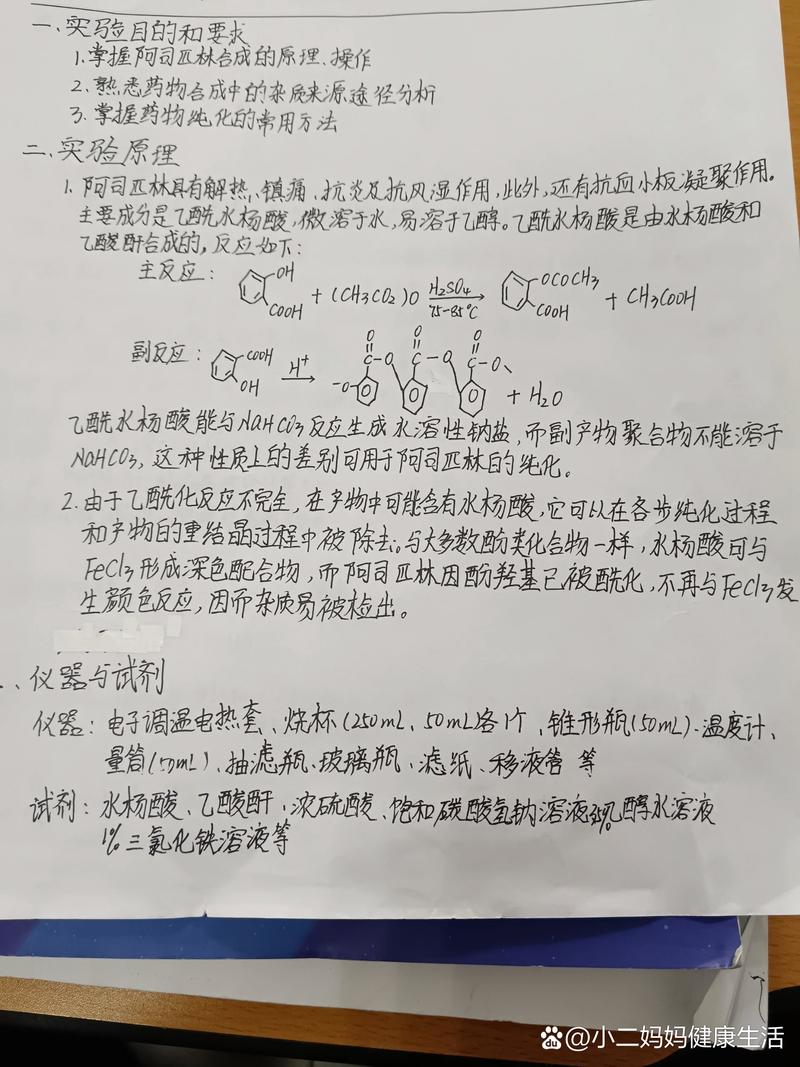 一、实验目的和要求
1.掌握阿司匹林合成的原理、操作
2.熟悉药物合成中的杂质来源途径分析
3.掌握药物纯化的常用方法
二、实验原理
1.阿司匹林具有解热、镇痛、抗炎及抗风湿作用,此外,还有抗血小板凝聚作用。
主要成分是乙酰水杨酸,微溶于水,易溶于乙醇。乙酰水杨酸是由水杨酸和
乙酸酐合成的,反应如下:
主反应: OH COOH + (CH3CO2)O H2SO4 75-85℃ → OCOCH3 COOH + CH3COOH
副反应: COOH OH H+ → -O- O C-O O C-O O C-O、 + H2O
乙酰水杨酸能与NaHCO3反应生成水溶性钠盐,而副产物聚合物不能溶于
NaHCO3,这种性质上的差别可用于阿司匹林的纯化。
2.由于乙酰化反应不完全,在产物中可能含有水杨酸,它可以在各步纯化过程
和产物的重结晶过程中被除去。与大多数酚类化合物一样,水杨酸可与
FeCl3形成深色配合物,而阿司匹林因酚羟基已被酰化,不再与FeCl3发
生颜色反应,因而杂质易被检出。
、仪器与试剂
仪器:电子调温电热套、烧杯(250mL、50mL)各1个、锥形瓶(50mL)、温度计、
量筒(50mL)、抽滤瓶、玻璃瓶、滤纸、移液管 等
试剂:水杨酸、乙酸酐、浓硫酸、饱和碳酸氢钠溶液、乙醇水溶液
1%三氯化铁溶液等
Baidu @小二妈妈健康生活